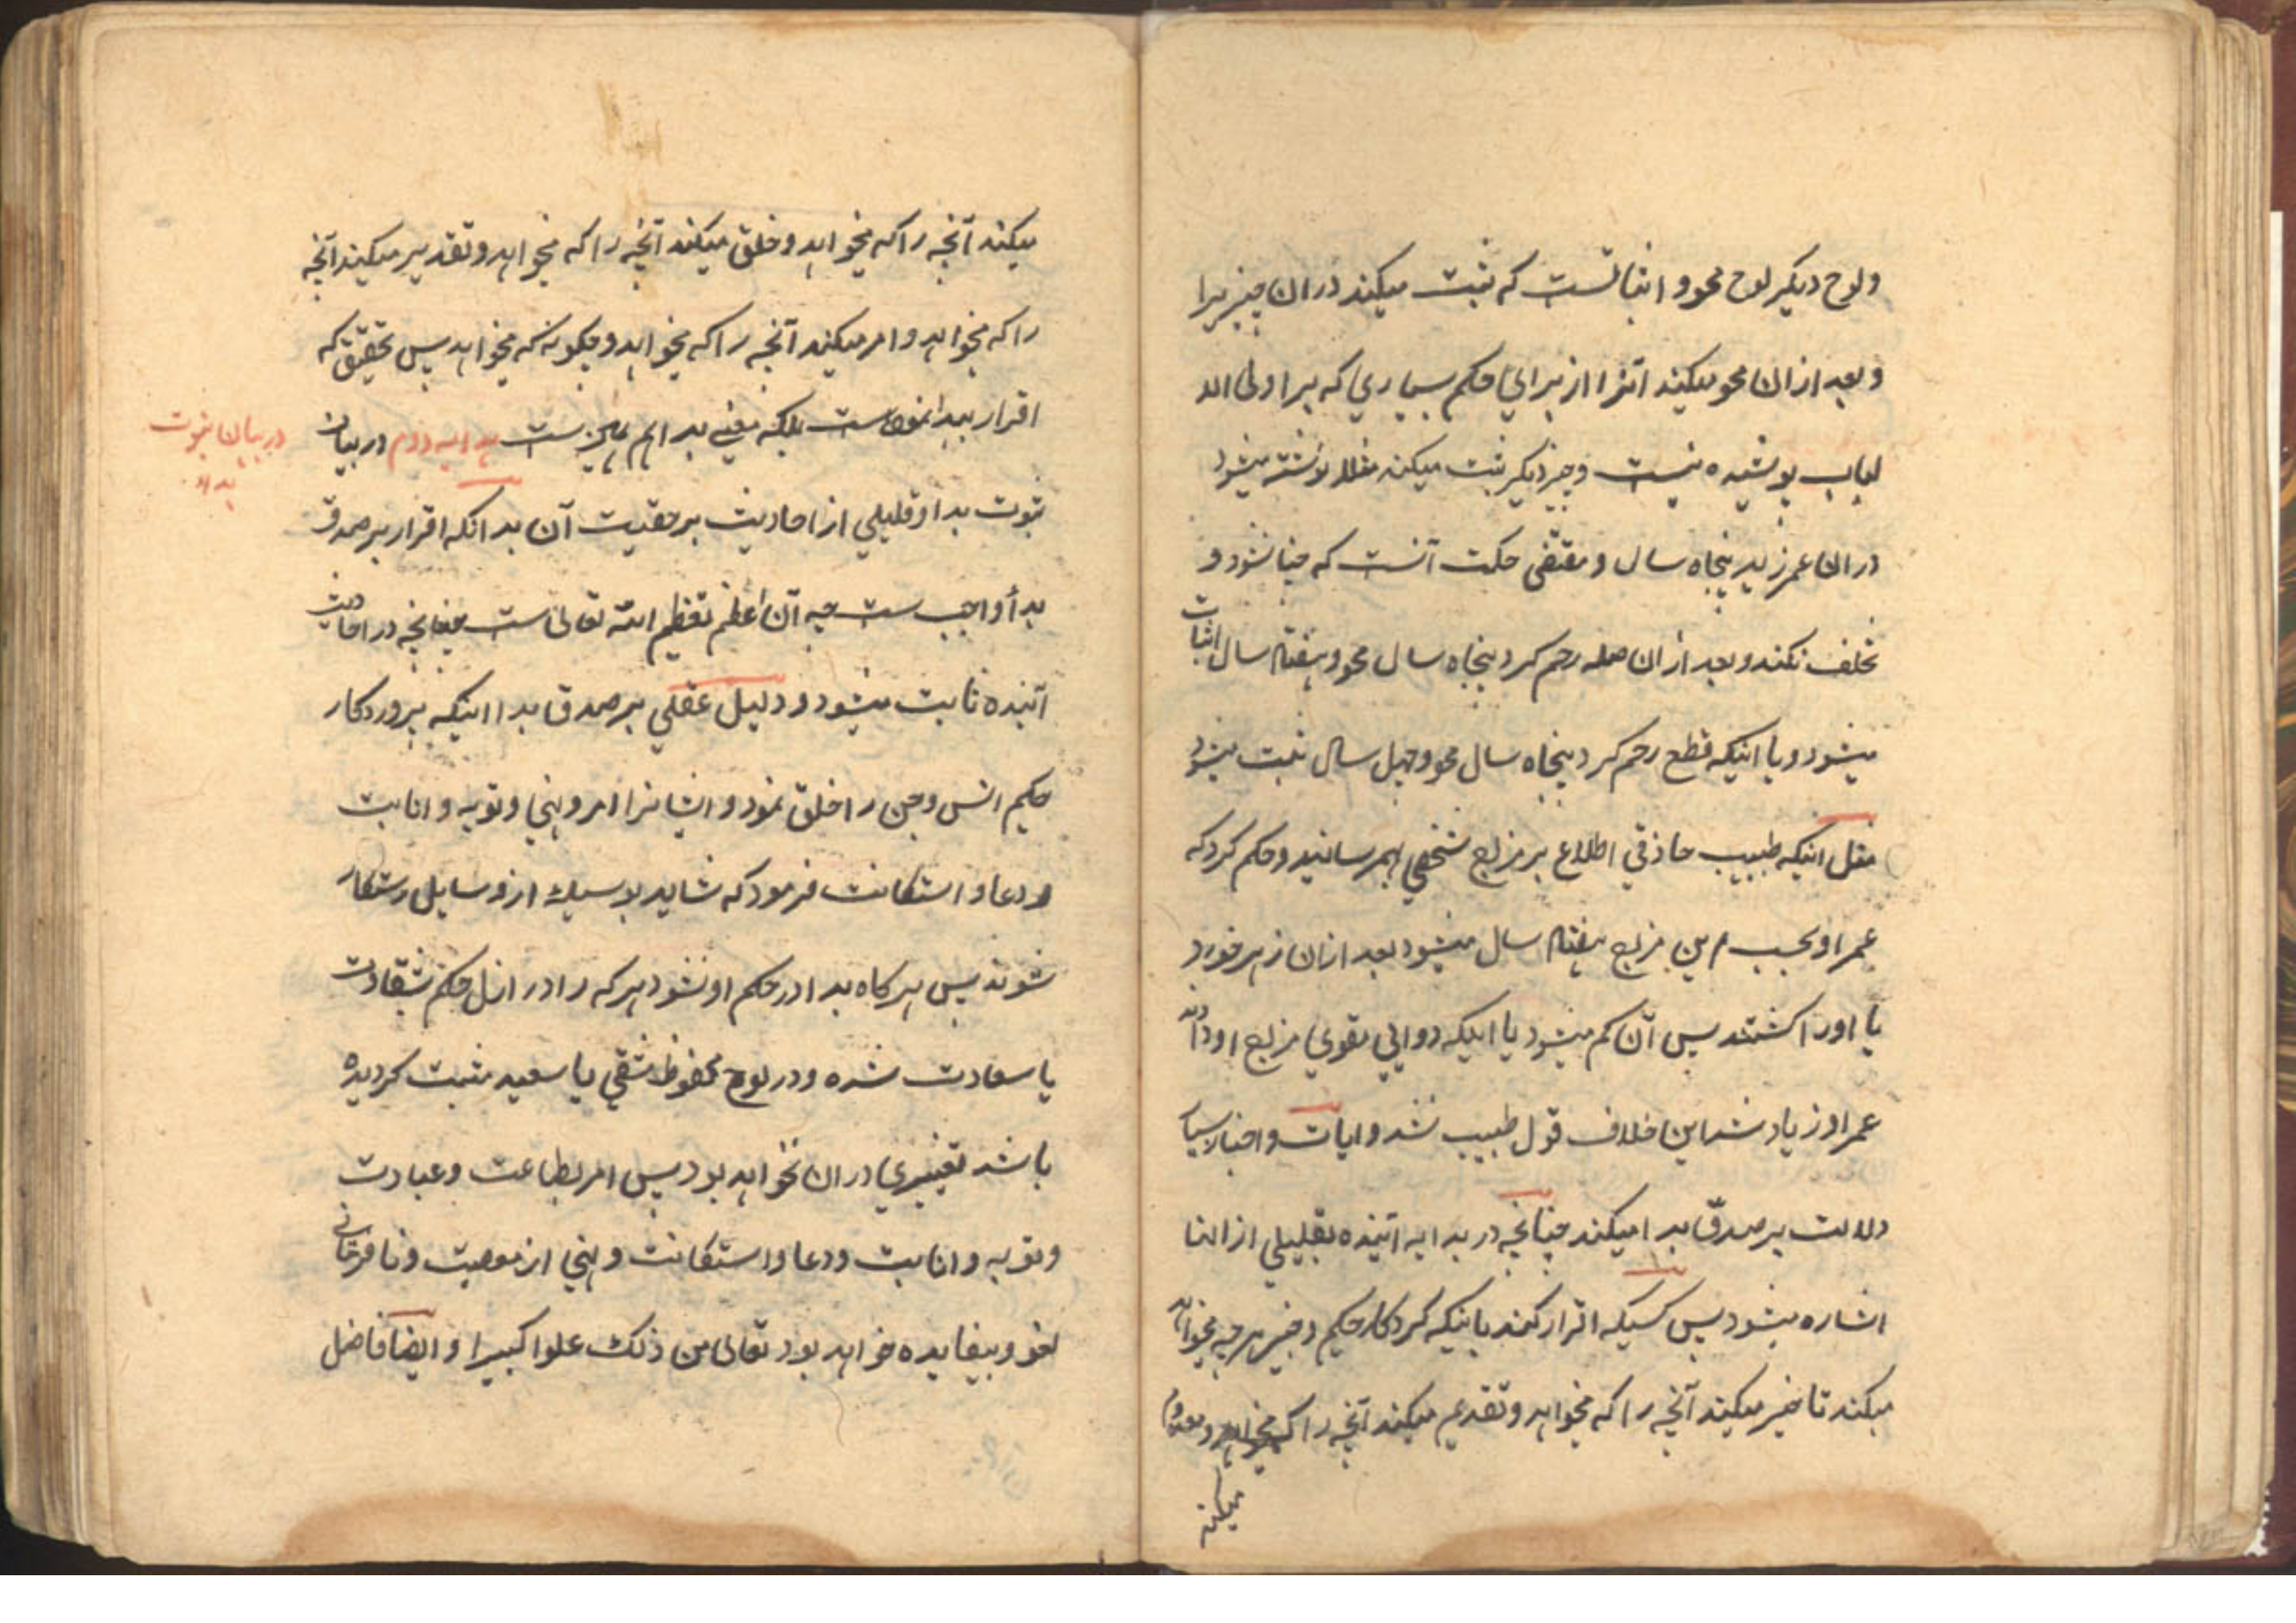 ولوح دیگر لوح محو و اثباتست که ثبت میکند در ان چیزیرا
و بعد از ان محو میکند انرا از برای حکم بسیاری که بر اولی الا
لباب پوشیده نیست و چیز دیگر ثبت میکند مثلا نوشته میشود
در ان عمر زید پنجاه سال و مقتضی حکمت آنست که چنا نشود و
تخلف نکند و بعد از ان صله رحم کرد پنجاه سال محو و هفتاد سال اثبات
میشود و یا اینکه قطع رحم کرد پنجاه سال محو و چهل سال ثبت میشود
مثل اینکه طبیب حاذقی اطلاع بر مزاج شخصی بهمرسانید و حکم کرد که
عمر او بحسب این مزاج هفتاد سال میشود بعد از ان زهر خورد
یا اورا کشتند پس آن کم میشود یا اینکه دوایی مقوی مزاج او داد
عمر او زیاد شد این خلاف قول طبیب نشد و ایات و اخبار بسیا
دلالت بر صدق بدا میکند چنانچه در هدایه اتیه بقلیلی از انها
اشاره میشود پس کسیکه اقرار کند باینکه کردکار حکیم و خبیر هر چه میخواهد
میکند تاخیر میکند آنچه را که میخواهد و تقدیم میکند آنچه را که میخواهد و معدوم
میکند
میکند آنچه را که میخواهد و خلق میکند آنچه را که میخواهد و تقدیر میکند آنچه
را که میخواهد و امر میکند آنچه را که میخواهد و چکونه که میخواهد پس تحقیق که
اقرار ببدا نموده‌ است بلکه معنی بدا هم همین ست هدایه دوم در بیان
ثبوت بدا و قلیلی از احادیث بر حقیت آن بدانکه اقرار بر صدق
بدأ واجب ست چه آن اعظم تعظیم الله تعالی ست چنانچه در احادیث
آتیه ثابت میشود و دلیل عقلی بر صدق بدا اینکه پروردکار
حکیم انس و جن را خلق نمود و ایشانرا امر و نهی و توبه و انابت
و دعا و استکانت فرمود که شاید بوسیله از وسایل رستکار
شوند پس هر کاه بدا در حکم او نشود هر که را در ازل حکم شقاوت
یا سعادت شده و در لوح محفوظ شقی یا سعید مثبت کردیده
باشد تغییری در ان نخواهد بود پس امر بطاعت و عبادت
و توبه و انابت و دعا و استکانت و نهی از معصیت و نافرمانی
لغو و بیفایده خواهد بود تعالی من ذلک علوا کبیرا و ایضا فاضل
در بیان ثبوت
بداء